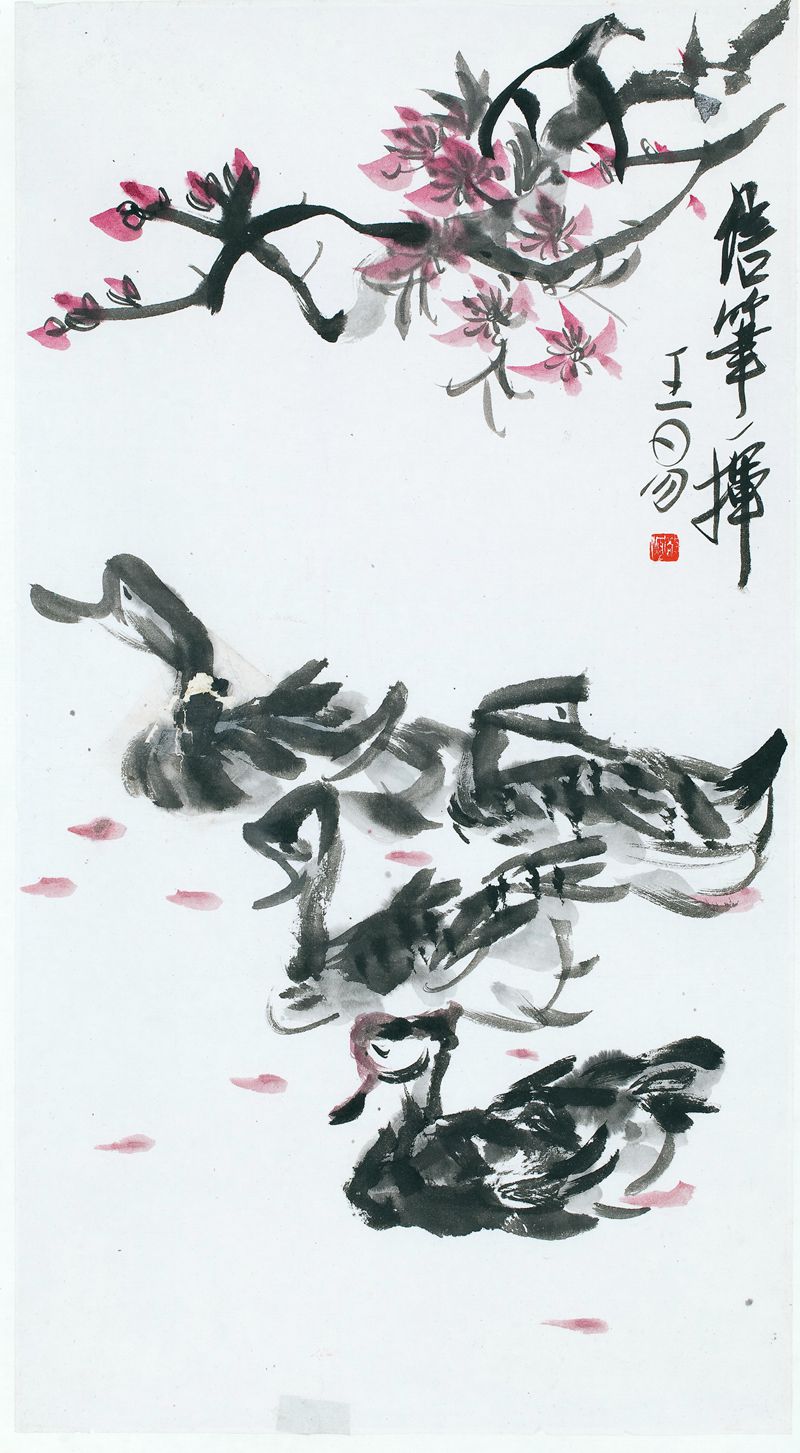 信筆一揮
王易